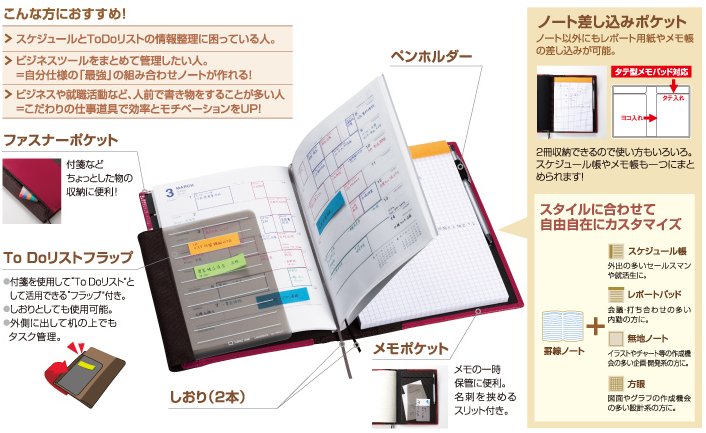 こんな方におすすめ!
スケジュールとToDoリストの情報整理に困っている人。
ビジネスツールをまとめて管理したい人。
＝自分仕様の「最強」の組み合わせノートが作れる!
ビジネスや就職活動など、人前で書き物をすることが多い人
＝こだわりの仕事道具で効率とモチベーションをUP!
ファスナーポケット
付箋など
ちょっとした物の
収納に便利!
To Doリストフラップ
●付箋を使用して“To Doリスト”と
して活用できる“フラップ”付き。
●しおりとしても使用可能。
●外側に出して机の上でも
タスク管理。
3 MARCH
しおり(2本)
ペンホルダー
メモポケット
メモの一時
保管に便利。
名刺を挟める
スリット付き。
ノート差し込みポケット
ノート以外にもレポート用紙やメモ帳
の差し込みが可能。
タテ型メモパッド対応
タテ入れ
ヨコ入れ
2冊収納できるので使い方もいろいろ。
スケジュール帳やメモ帳も一つにまと
められます!
スタイルに合わせて
自由自在にカスタマイズ
罫線ノート
+
スケジュール帳
外出の多いセールスマン
や就活生に。
レポートパッド
会議・打ち合わせの多い
内勤の方に。
無地ノート
イラストやチャート等の作成機
会の多い企画・開発系の方に。
方眼
図面やグラフの作成機会
の多い設計系の方に。